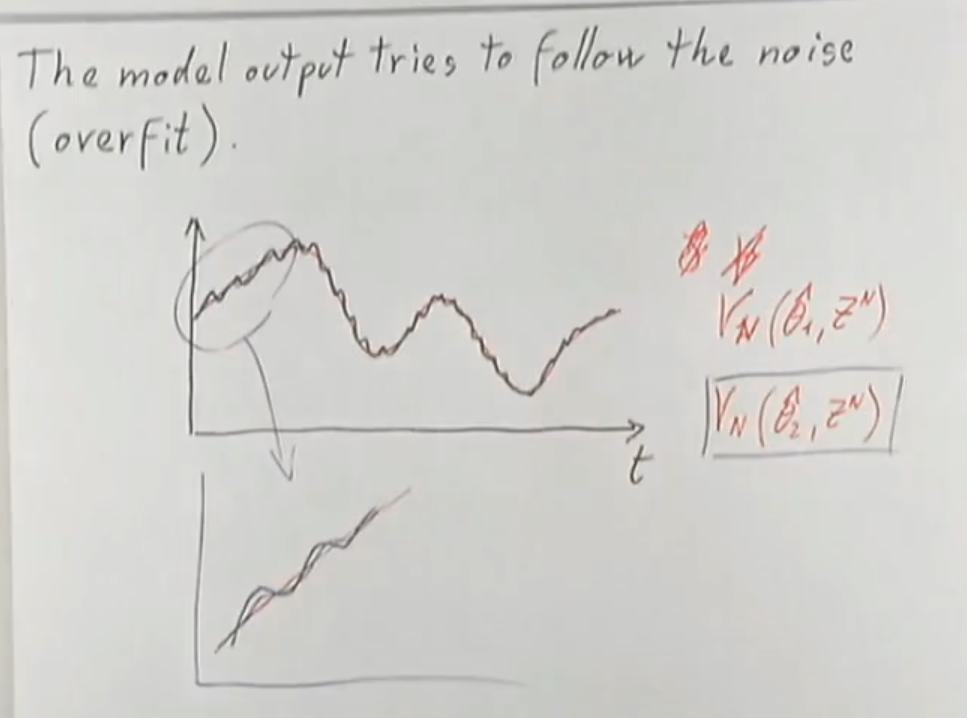 The model output tries to follow the noise
(overfit).
V_N(θ̂₁, Z^N)
V_N(θ̂₂, Z^N)
t